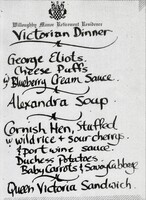 Willoughby Manor Retirement Residence
Victorian Dinner
George Eliots
Cheese Puffs
w Blueberry Cream Sauce.
Alexandra Soup
Cornish Hen, Stuffed
w wild rice & sour cherrys.
& port wine sauce.
Duchess Potatoes.
Baby Carrots & Savoy Cabbage
Queen Victoria Sandwich.